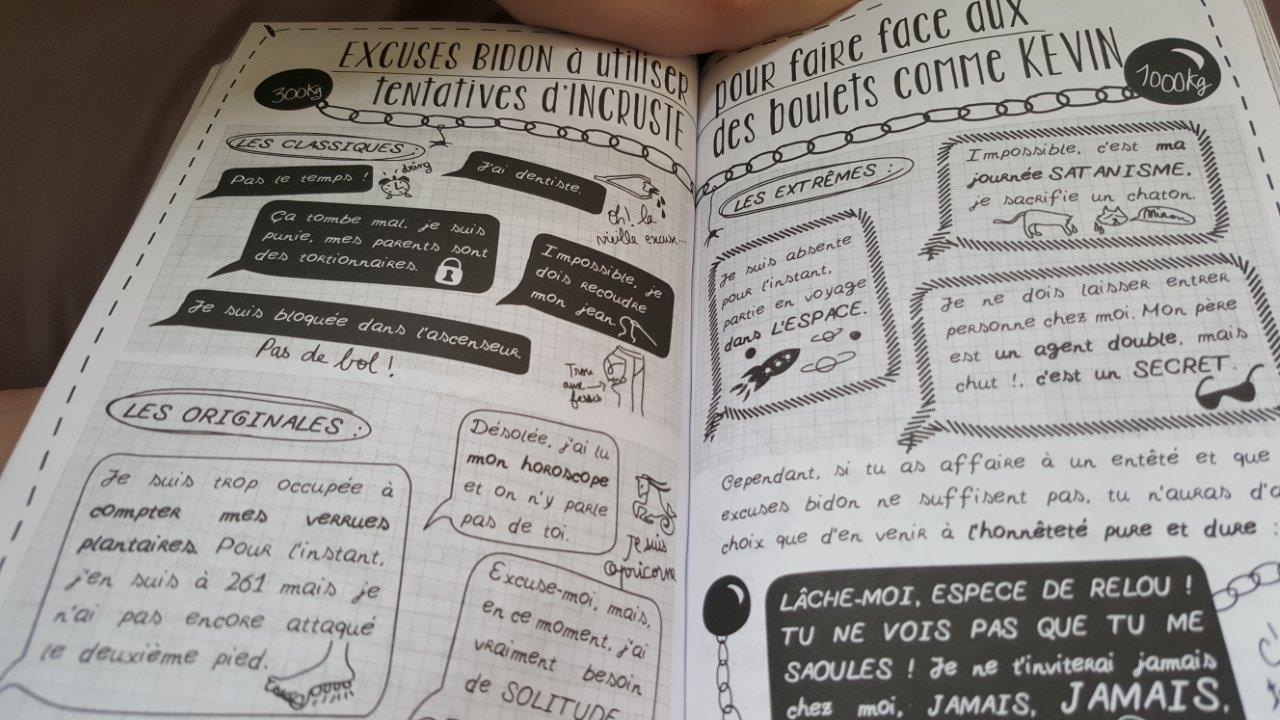 EXCUSES BIDON à utiliser pour faire face aux
tentatives d'INCRUSTE des boulets comme KEVIN
300Kg
1000Kg
LES CLASSIQUES :
Pas le temps !
dring
J'ai dentiste.
oh! la
vieille excuse...
Ça tombe mal, je suis
punie, mes parents sont
des tortionnaires.
Impossible, je
dois recoudre
mon jean.
Je suis bloquée dans l'ascenseur.
Pas de bol !
Trou
aux
fesses
LES ORIGINALES :
Je suis trop occupée à
compter mes verrues
plantaires. Pour l'instant,
j'en suis à 261 mais je
n'ai pas encore attaqué
le deuxième pied.
Désolée, j'ai lu
mon horoscope
et on n'y parle
pas de toi.
Je suis
Capricorne
Excuse-moi, mais,
en ce moment, j'ai
vraiment besoin
de SOLITUDE
LES EXTRÊMES :
Impossible, c'est ma
journée SATANISME,
je sacrifie un chaton.
Miaou
Je suis absente
pour l'instant,
partie en voyage
dans L'ESPACE.
Je ne dois laisser entrer
personne chez moi. Mon père
est un agent double, mais
chut !, c'est un SECRET.
Cependant, si tu as affaire à un entêté et que
excuses bidon ne suffisent pas, tu n'auras
choix que d'en venir à l'honnêteté pure et dure :
LÂCHE-MOI, ESPECE DE RELOU !
TU NE VOIS PAS QUE TU ME
SAOULES ! Je ne t'inviterai jamais
chez moi, JAMAIS, JAMAIS,